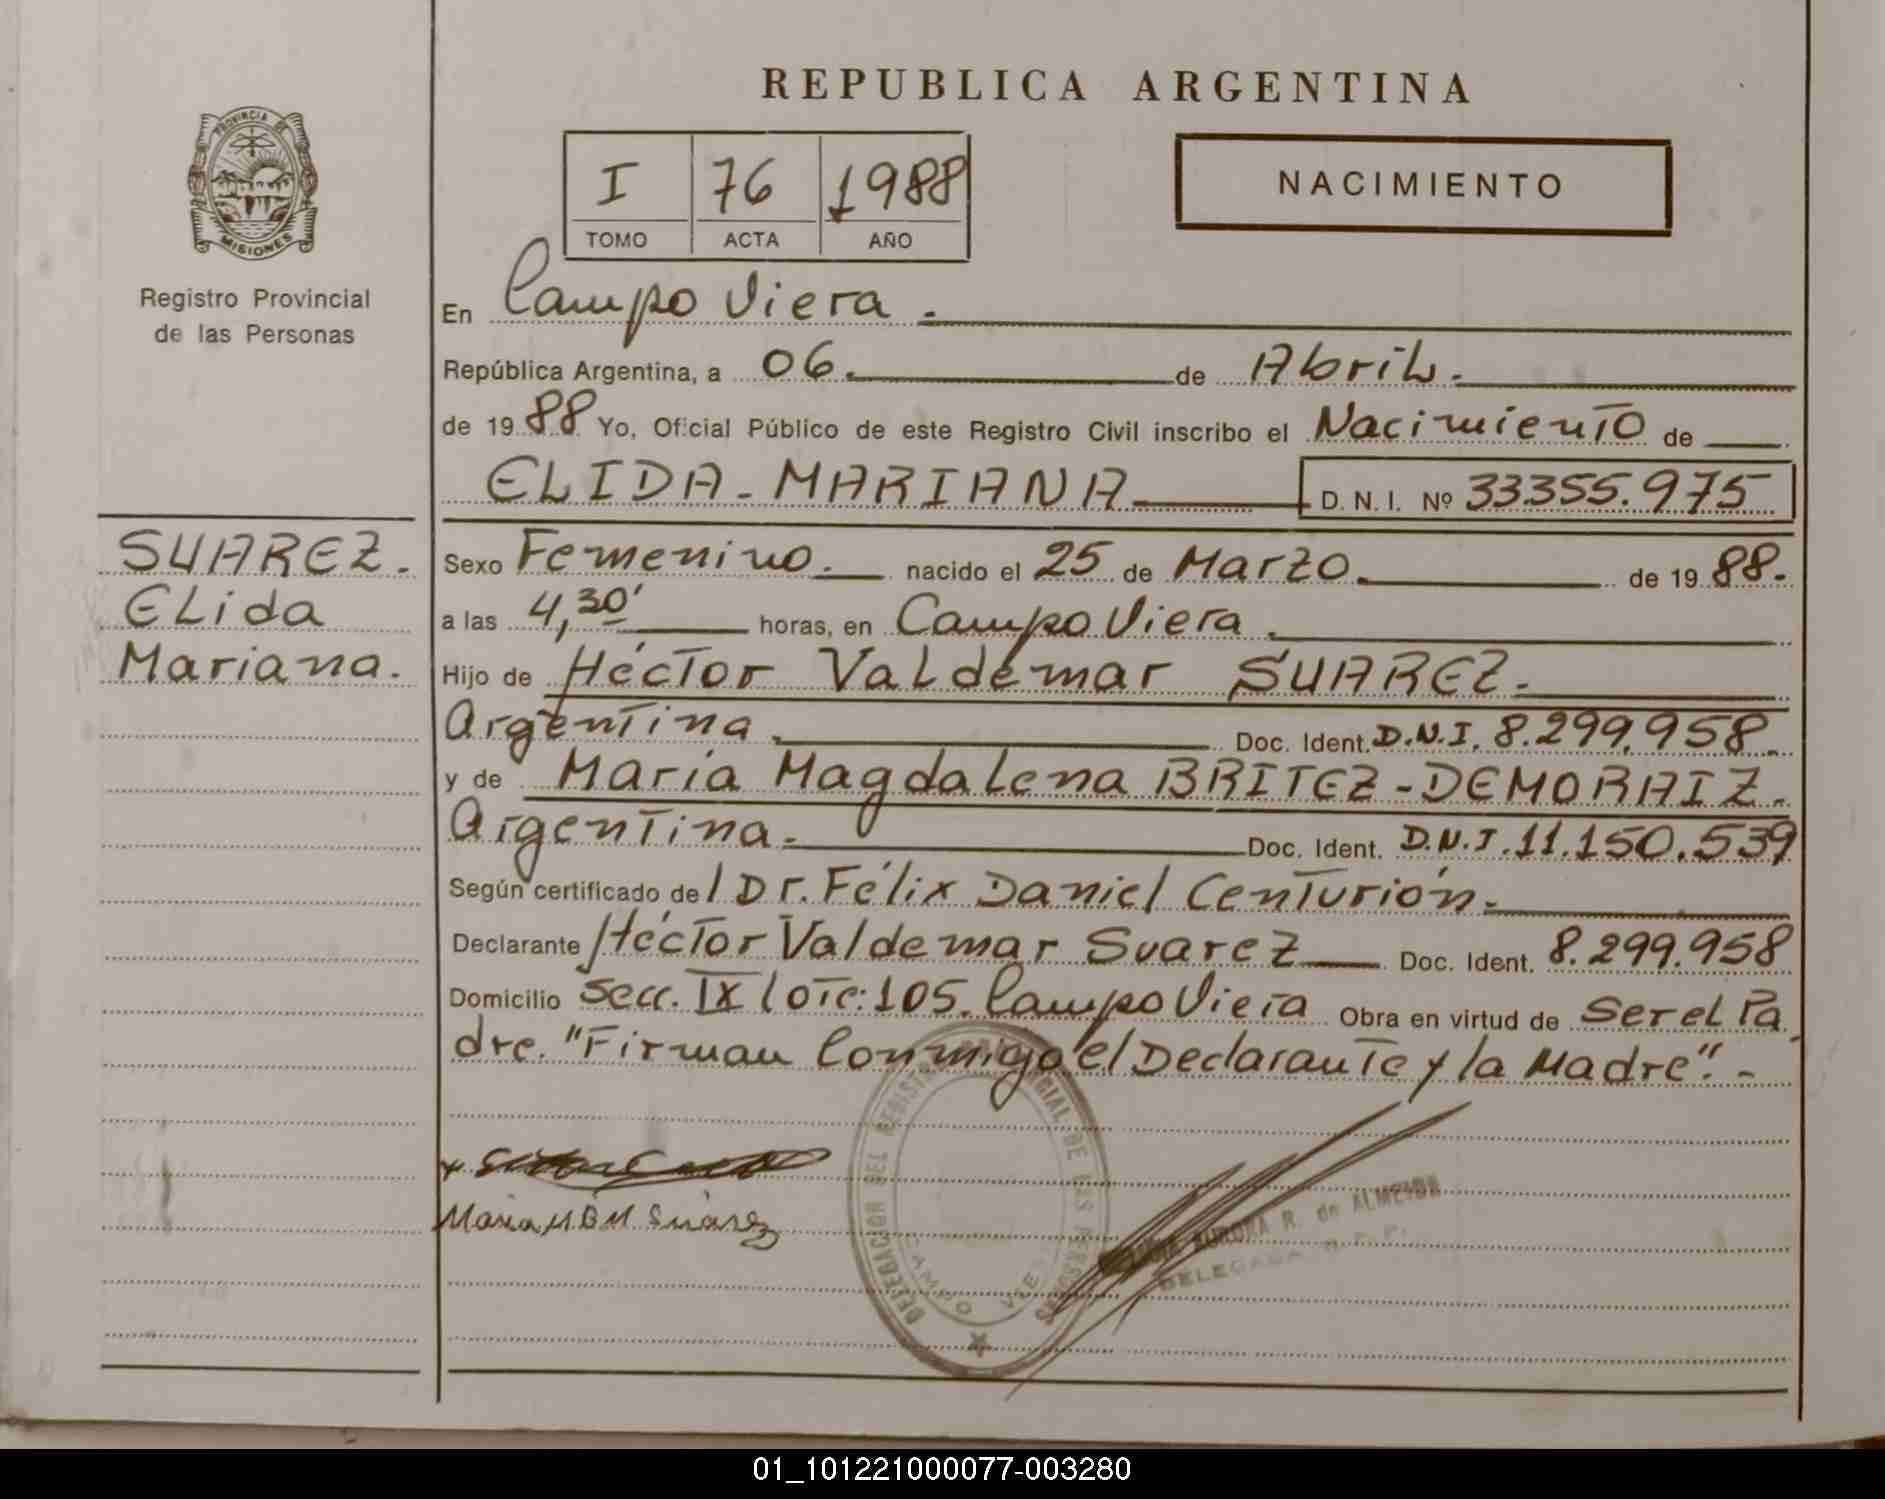 REPUBLICA ARGENTINA
PROVINCIA DE
MISIONES
Registro Provincial
de las Personas
I 76 1988
TOMO ACTA AÑO
NACIMIENTO
En Campo Viera.
República Argentina, a 06. de Abril.
de 1988 Yo, Oficial Público de este Registro Civil inscribo el Nacimiento de
ELIDA-MARIANA D. N. I. Nº 33.355.975
SUAREZ.
ELida
Mariana.
Sexo Femenino. nacido el 25 de Marzo. de 1988.
a las 4,30' horas, en Campo Viera.
Hijo de Héctor Valdemar SUAREZ.
Argentina. Doc. Ident. D.N.I. 8.299.958.
y de María Magdalena BRITEZ-DEMORAIZ.
Argentina. Doc. Ident. D.N.I. 11.150.539
Según certificado del Dr. Félix Daniel Centurión.
Declarante Héctor Valdemar Suarez Doc. Ident. 8.299.958
Domicilio Secc. IX lote: 105. Campo Viera Obra en virtud de Ser el Pa
dre. "Firman Conmigo el Declarante y la Madre".-
María M.B.M. Suárez
DELEGACION DEL REGISTRO PROVINCIAL DE LAS PERSONAS
CAMPO VIERA
AURORA R. de ALMEIDA
DELEGADA R. P. P.
01_101221000077-003280